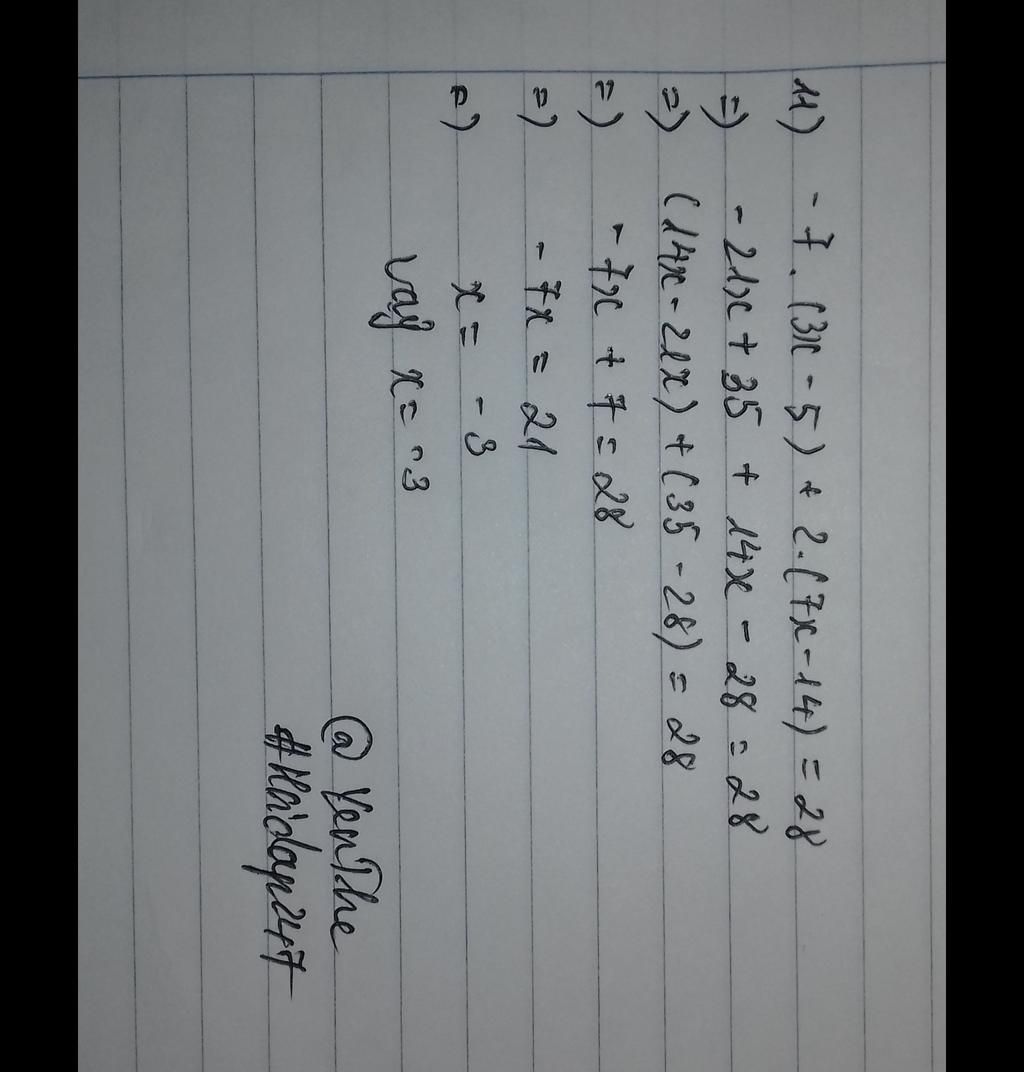 11) - 7. (3x - 5) + 2. (7x - 14) = 28
=) - 21x + 35 + 14x - 28 = 28
=) (14x - 21x) + (35 - 28) = 28
=) - 7x + 7 = 28
=) - 7x = 21
=) x = - 3
Vậy x = - 3
@ YenThe
#Hoidap247